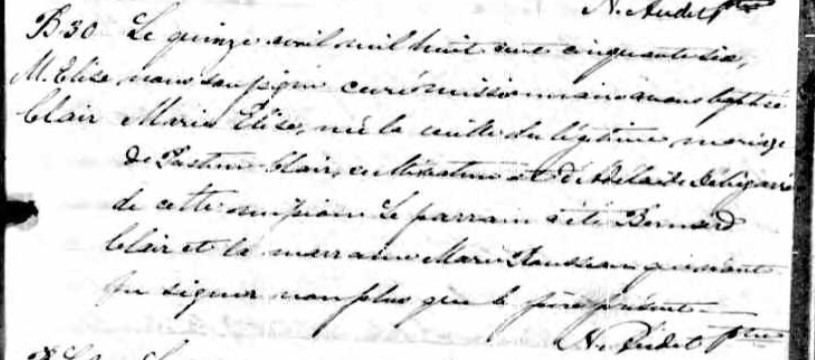 N. Audet Ptre
B 30 Le quinze avril mil huit cent cinquante six,
M. Elise nous soussigné curé missionnaire avons baptisé
Clair Marie Elise, née la veille du légitime mariage
de Pastime Clair, cultivateur et d'Adelaide
de cette mission Le parrain a été Bernard
Clair et la marraine Marie Rousseau qui n'ont
pu signer non plus que le père présent
N. Audet Ptre